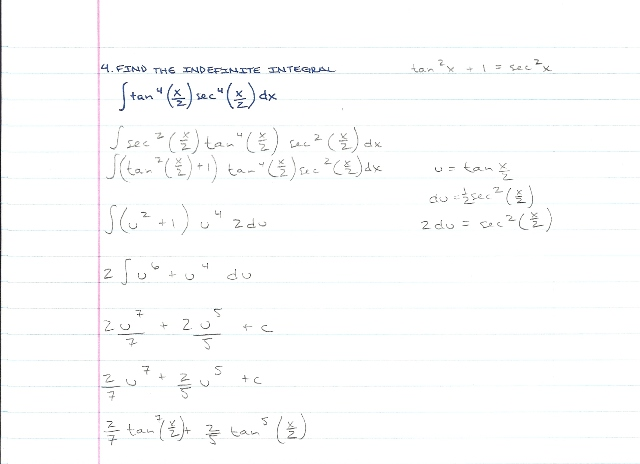 4. FIND THE INDEFINITE INTEGRAL
tan²x + 1 = sec²x
∫ tan⁴(x/2) sec⁴(x/2) dx
∫ sec²(x/2) tan⁴(x/2) sec²(x/2) dx
∫ (tan²(x/2) + 1) tan⁴(x/2) sec²(x/2) dx
u = tan x/2
du = ½ sec²(x/2)
∫ (u² + 1) u⁴ 2du
2 du = sec²(x/2)
2 ∫ u⁶ + u⁴ du
2u⁷/7 + 2u⁵/5 + c
2/7 u⁷ + 2/5 u⁵ + c
2/7 tan⁷(x/2) + 2/5 tan⁵(x/2)